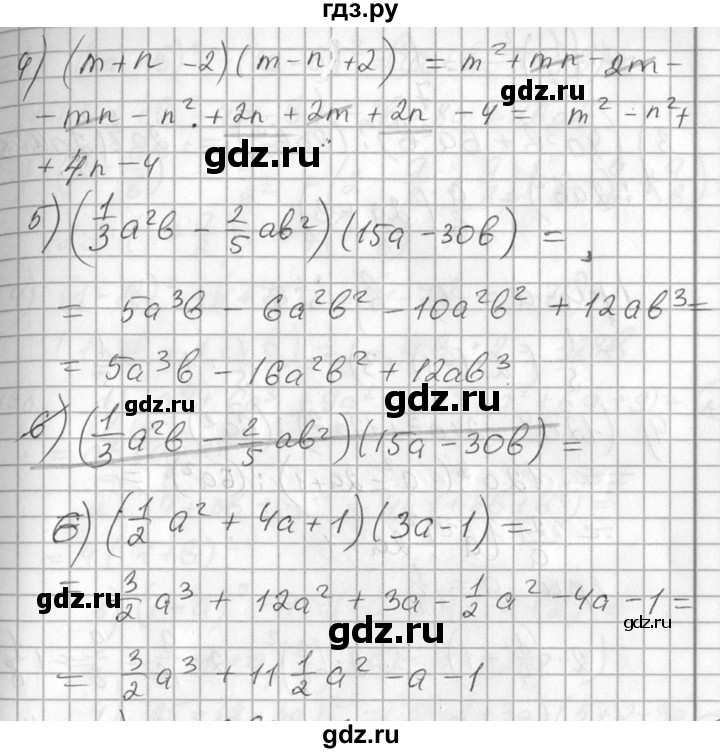 гдз.ру
4) (m+n -2)(m-n +2) = m² + mn - 2m -
gdz.ru
- mn - n² + 2n + 2m + 2n - 4 = m² - n² +
gdz.ru
+ 4n - 4
5) (1/3 a²b - 2/5 ab²)(15a - 30b) =
= 5a³b - 6a²b² - 10a²b² + 12ab³ =
= 5a³b - 16a²b² + 12ab³
gdz.ru
gdz.ru
6) (1/3 a²b - 2/5 ab²)(15a - 30b) =
6) (1/2 a² + 4a + 1)(3a - 1) =
gdz.ru
= 3/2 a³ + 12a² + 3a - 1/2 a² - 4a - 1 =
gdz.ru
gdz.ru
= 3/2 a³ + 11 1/2 a² - a - 1
gdz.ru